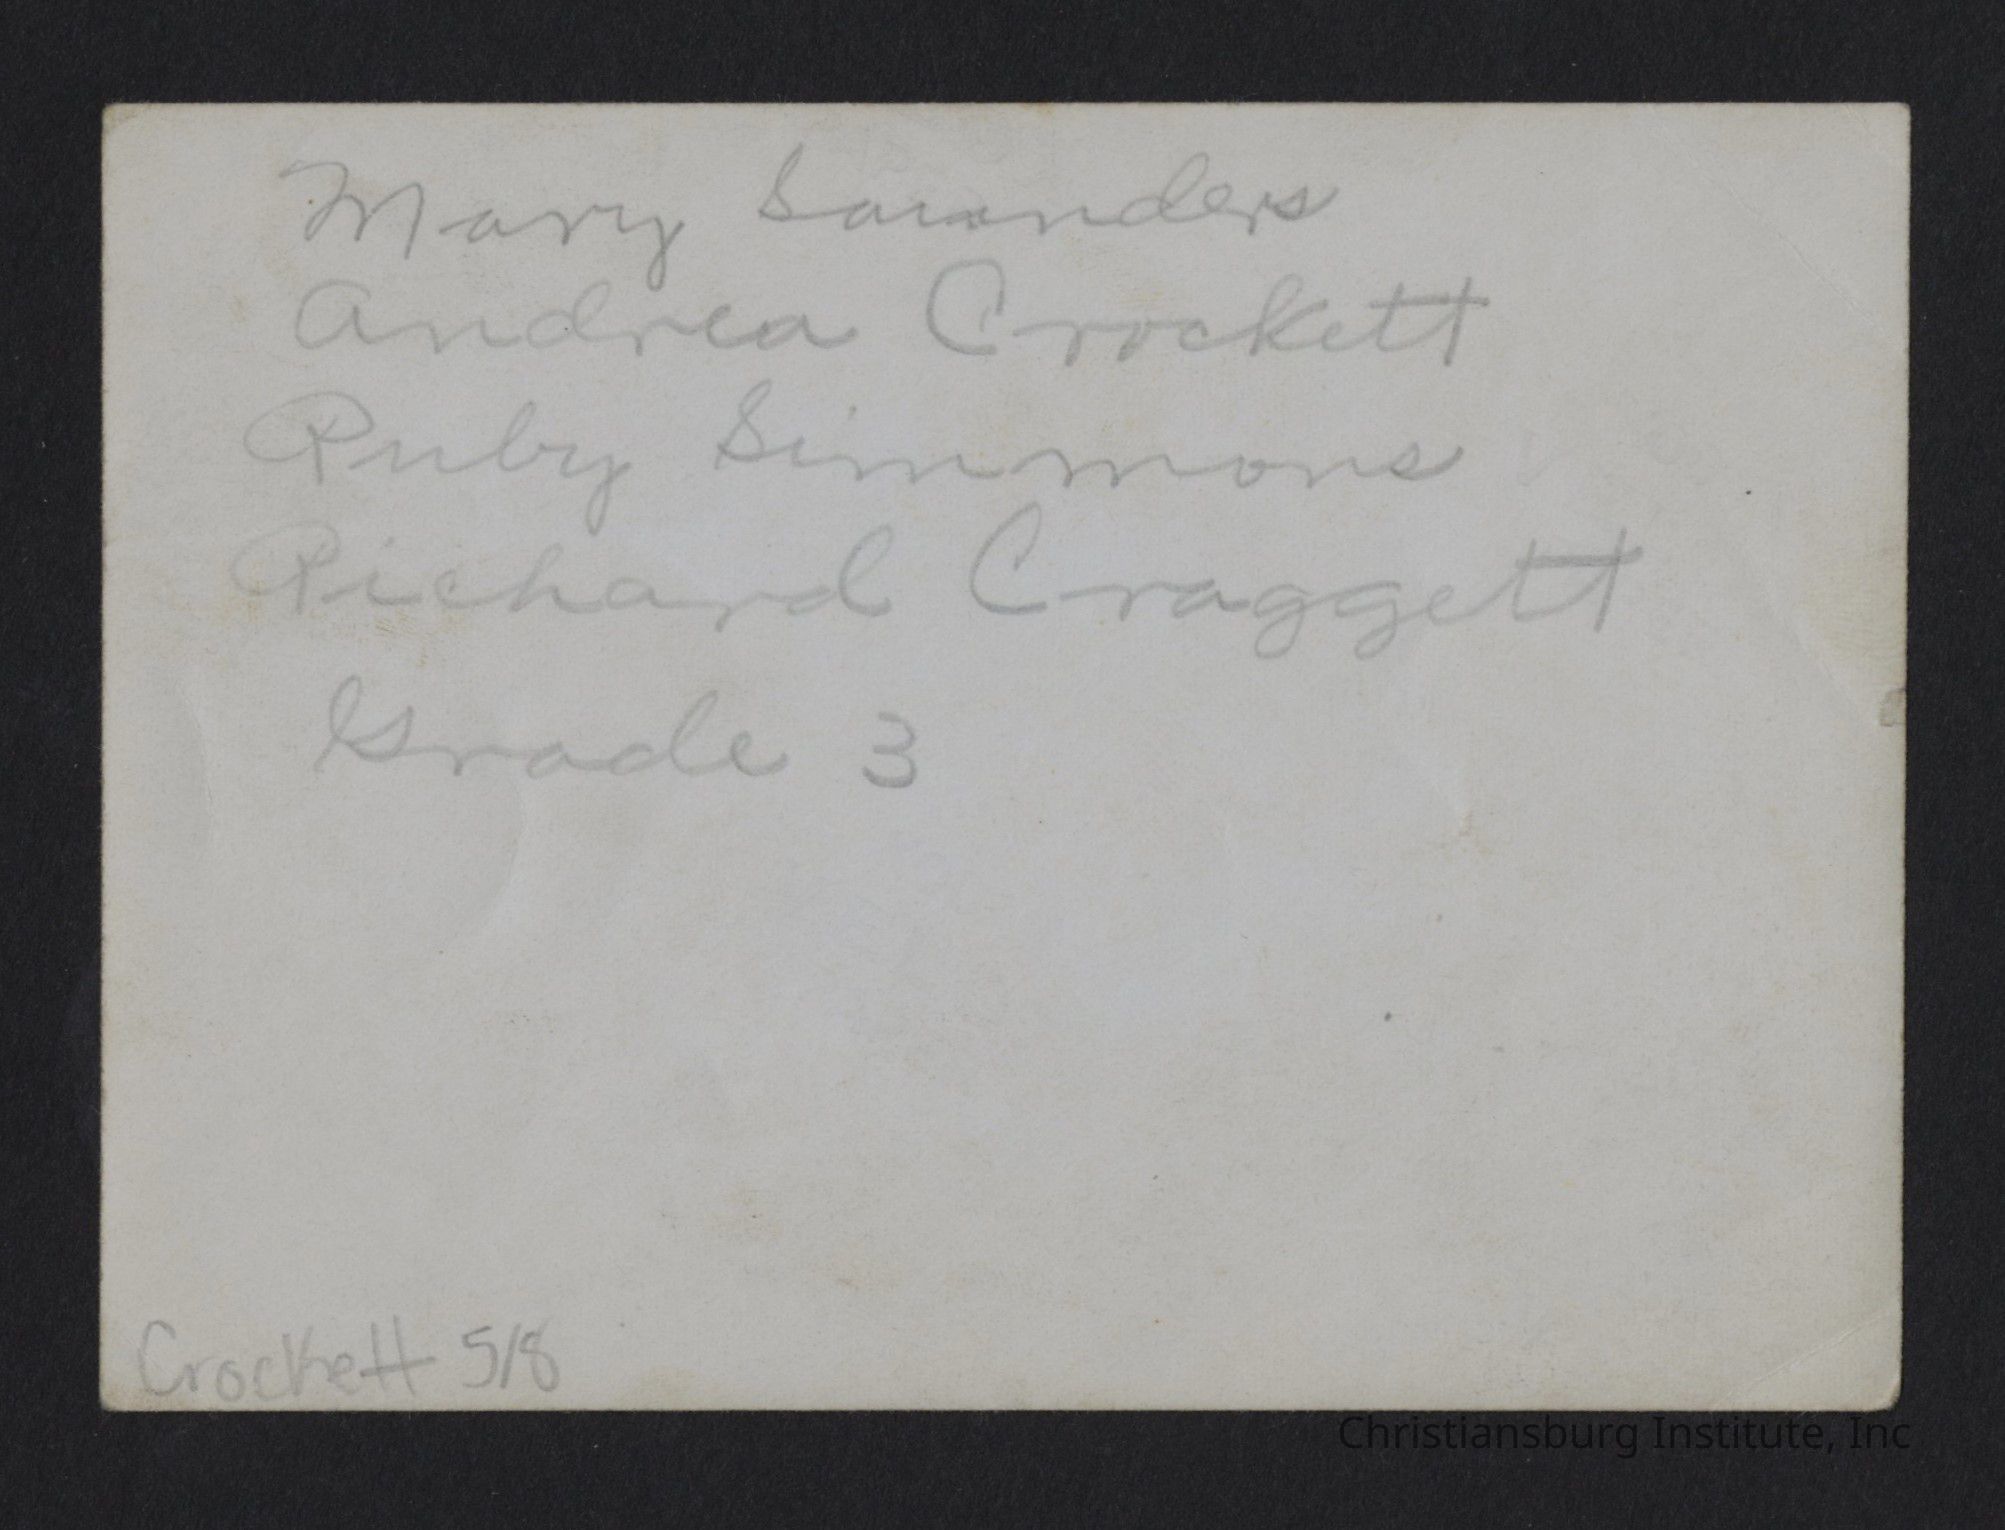 Mary Saunders
Andrea Crockett
Ruby Simmons
Richard Craggett
Grade 3
Crockett 518
Christiansburg Institute, Inc